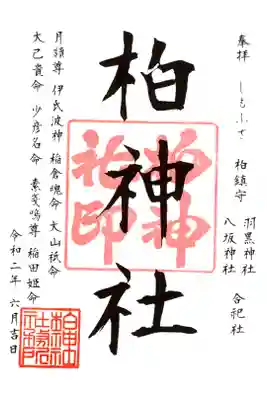 奉拝
しもふさ 柏鎮守
羽黒神社
八坂神社
合祀社
柏神社
柏神
社印
月讀尊 伊氐波神 稲倉魂命 大山祇命
大己貴命 少彦名命 素戔嗚尊 稲田姫命
令和二年 六月吉日